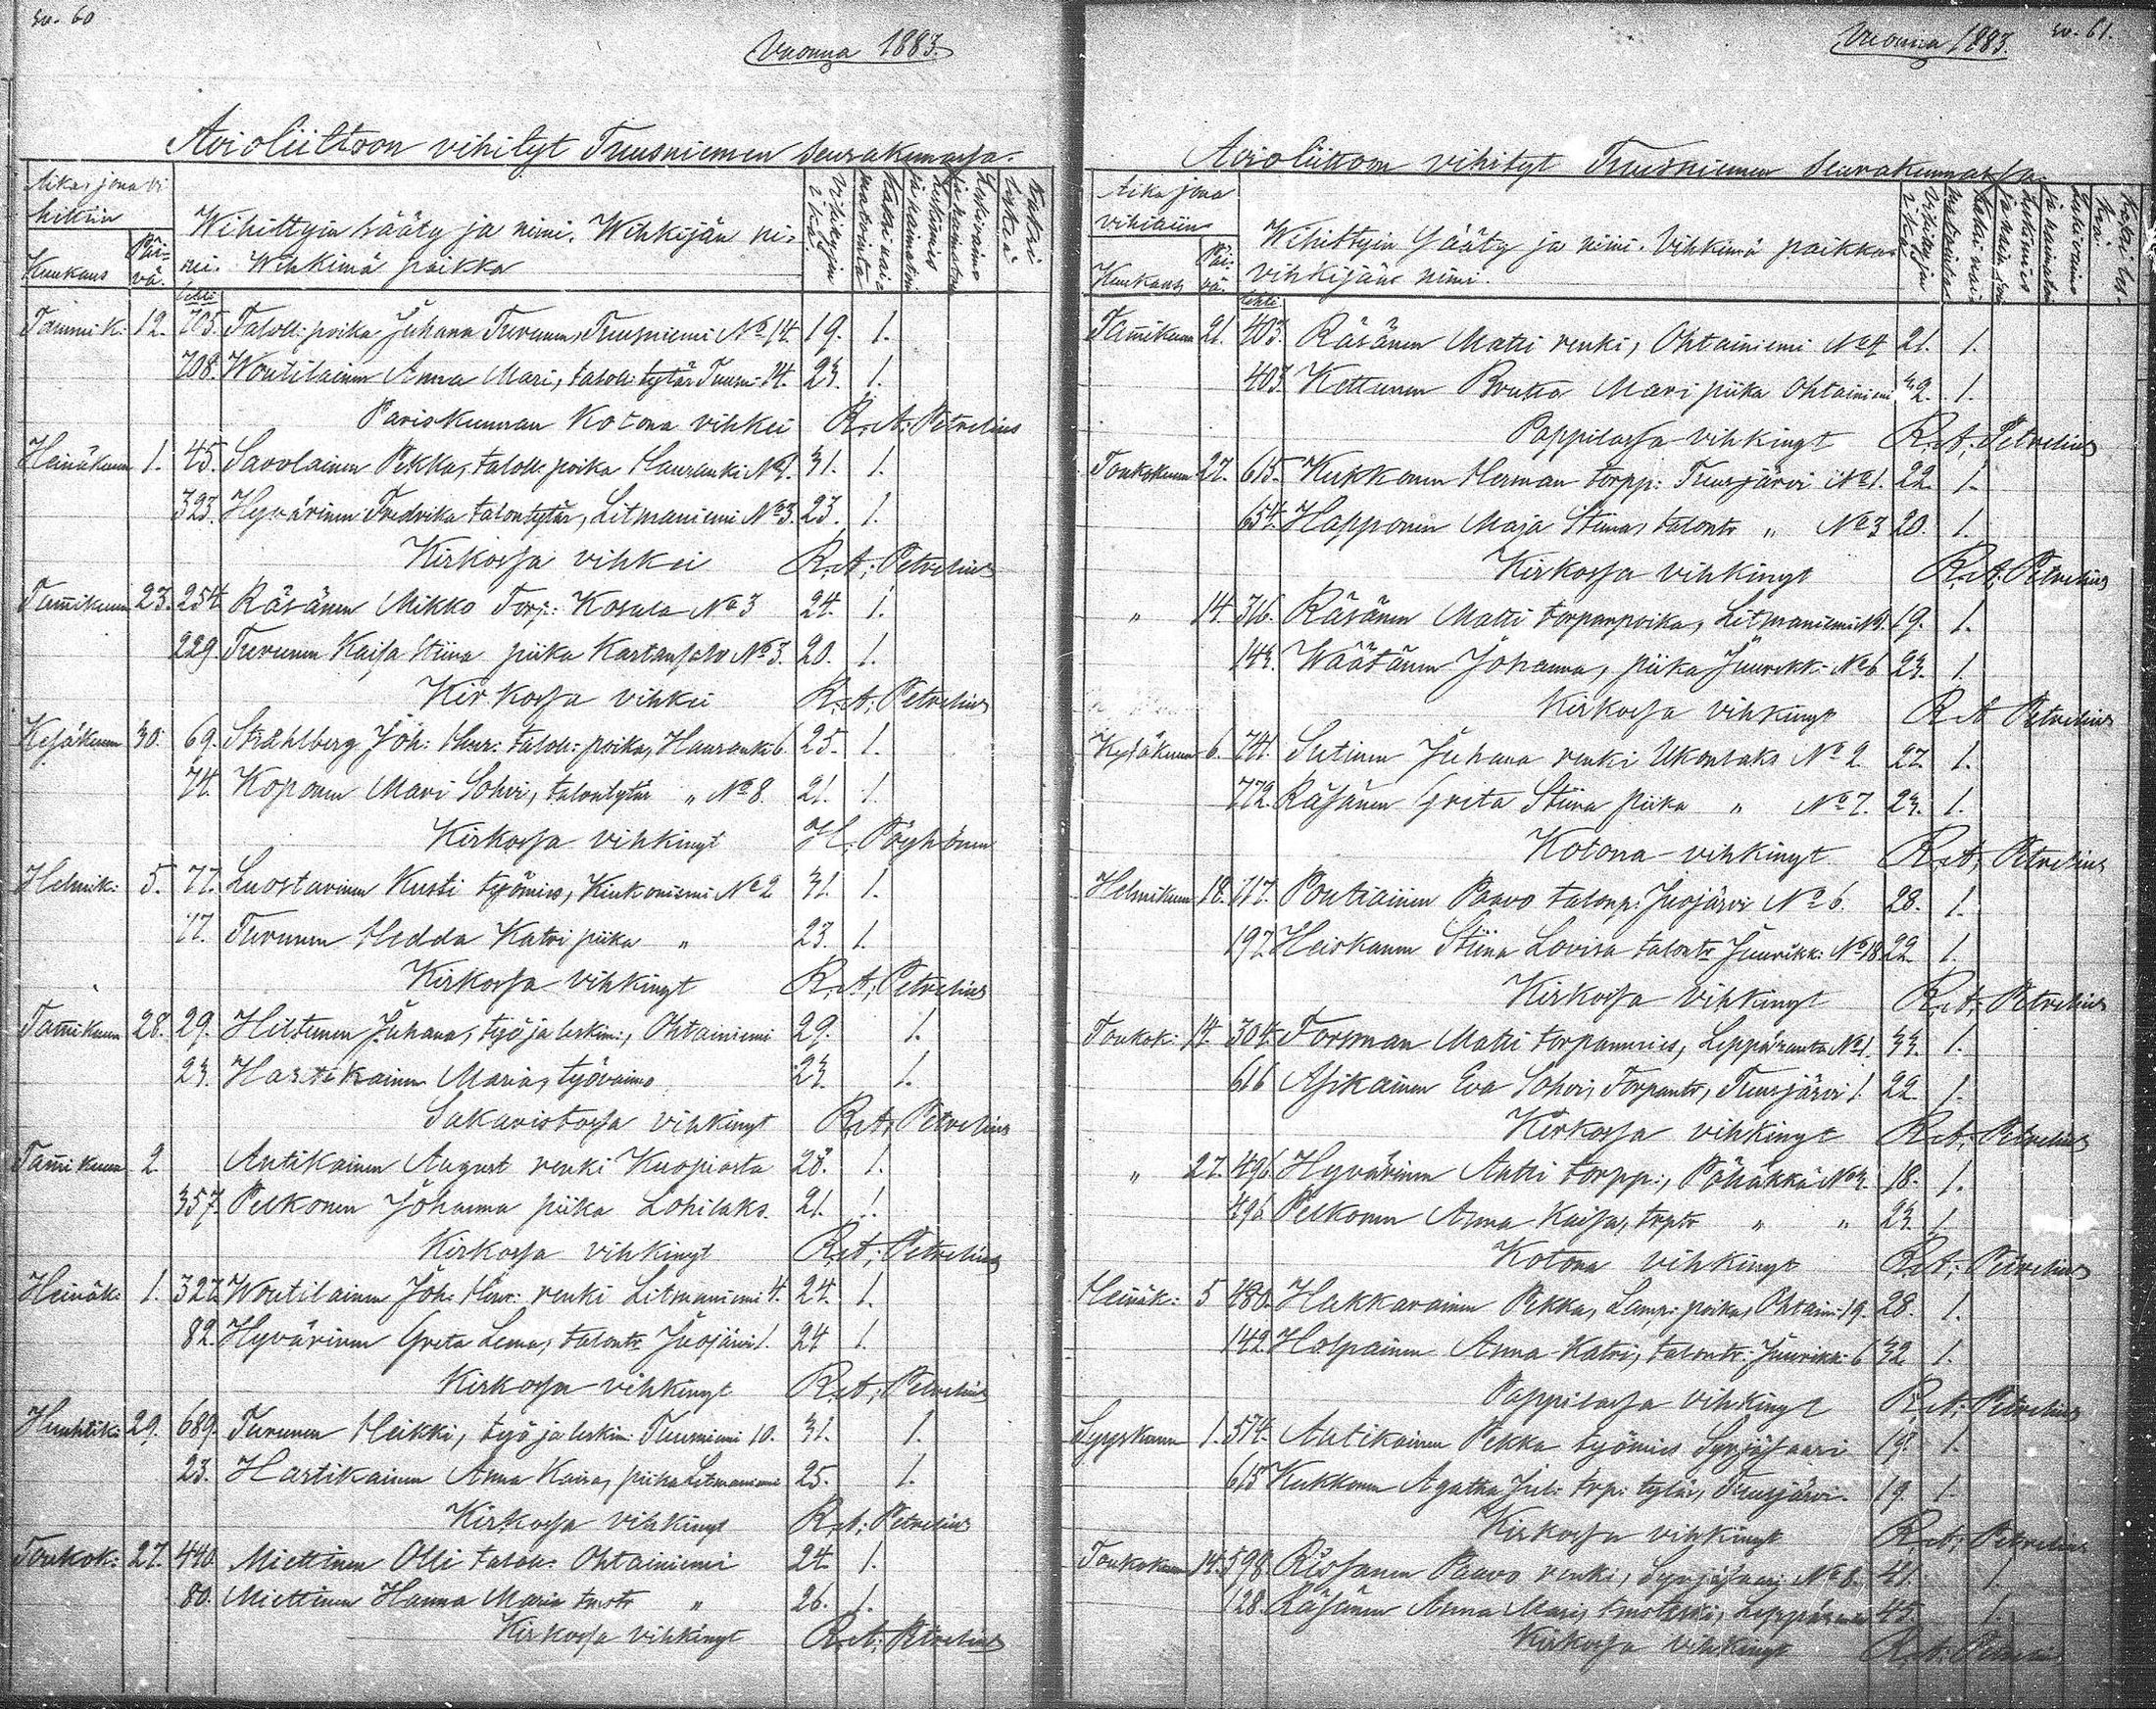 sv. 60
Vuonna 1883.
Avioliittoon vihityt Tuusniemen seurakunnassa.
Aika, jona vi
hittiin
Kuukaus Päi-
vä.
Wihittyin sääty ja nimi. Wihkijän ni-
mi. Wihkimä paikka
Vihittyjen
ikä.
lehti
Tammik: 12. 705. Taloll: poika Juhana Turunen, Tuusniemi No 14. 19. 1.
708. Woutilainen Anna Mari, taloll: tytär Tuusn: 14. 23. 1.
Pariskunnan Kotona vihkei R. A. Petrelius
Heinäkuun 1. 45. Savolainen Pekka, taloll: poika Hauranki No 1. 31. 1.
323. Hyvärinen Fredrika talontytär, Litmaniemi No 3. 23. 1.
Kirkossa vihkei R. A. Petrelius
Tamikuun 23. 254. Räsänen Mikko Torp: Kosula No 3 24. 1.
229. Turunen Kaisa Stiina piika Kartansalo No 3. 20. 1.
Kirkossa vihkei R. A. Petrelius
Kesäkuun 30. 69. Strahlberg Joh: Henr: taloll: poika, Hauranki 6. 25. 1.
74. Koponen Mari Sohvi, talontytär " No 8. 21. 1.
Kirkossa vihkingt H. Pöyhönen
Helmik: 5. 77. Luostarinen Kusti työmies, Kiukoniemi No 2 31. 1.
77. Turunen Hedda Katri piika " 23. 1.
Kirkossa vihkingt R. A. Petrelius
Tamikuun 28. 29. Hiltunen Juhana, työ ja leskim:, Ohtainiemi 29. 1.
23. Hartikainen Maria, työvaimo 23. 1.
Sakaristossa vihkingt R. A. Petrelius
Tamikuun 2 Antikainen August renki Kuopiosta 28. 1.
357. Pelkonen Johanna piika Lohilaks. 21. 1.
Kirkossa vihkingt R. A. Petrelius
Heinäk: 1. 327. Woutilainen Joh: Henr: renki Litmaniemi 4. 24. 1.
82. Hyvärinen Greta Leena, talontr Juojärvi 1. 24 1.
Kirkossa vihkingt R. A. Petrelius
Huhtik: 29. 689. Turunen Heikki, työ ja leskim: Tuusniemi 10. 31. 1.
23. Hartikainen Anna Kaisa, piika Litmaniemi 25. 1.
Kirkossa vihkingt R. A. Petrelius
Toukok: 27. 440. Miettinen Olli taloll: Ohtainiemi 24. 1.
80. Miettinen Hanna Maria " 26. 1.
Kirkossa vihkingt R. A. Petrelius
Vuonna 1883. sv. 61.
Avioliittoon vihityt Tuusniemen seurakunnassa.
Aika jona
vihittiin
Kuukaus Päi-
vä.
Wihittyin sääty ja nimi. Vihkimä paikka
vihkijäns nimi.
Vihittyjen
ikä
lehti
Tamikuun 21. 403. Räsänen Matti renki, Ohtainiemi No 4 21. 1.
403. Kettunen Mari piika Ohtainiemi 32. 1.
Pappilassa vihkingt R. A. Petrelius
Toukokuun 27. 615. Kukkonen Herman torpp: Tuusjärvi No 1. 22. 1.
654. Happonen Maja Stiina, talontr " No 3 20. 1.
Kirkossa vihkingt R. A. Petrelius
" 14. 316. Räsänen Matti torparpoika, Litmaniemi 19. 1.
143. Wäätänen Johanna, piika Juurikk: No 6 23. 1.
Kirkossa vihkingt R. A. Petrelius
Kesäkuun 6. 741. Sutinen Juhana renki Ukonlaks No 2. 27. 1.
772. Räsänen Greta Stiina piika " No 7. 23. 1.
Kotona vihkingt R. A. Petrelius
Helmikuun 18. 117. Poutiainen Paavo talonp: Juojärvi No 6. 28. 1.
197 Heiskanen Stiina Lovisa talontr Juurikk: No 18. 22. 1.
Kirkossa vihkingt R. A. Petrelius
Toukok: 14. 304. Forsman Matti torpanmies, Leppäranta No 1. 33. 1.
616 Asikainen Eva Sohvi, Torpantr, Tuusjärvi 1. 22. 1.
Kirkossa vihkingt R. A. Petrelius
" 27. 496. Hyvärinen Antti torpp:, Pöläkkä No 3. 18. 1.
496 Pelkonen Anna Kaisa, trptr " " 23. 1.
Kotona vihkingt R. A. Petrelius
Heinäk: 5 480. Hakkarainen Pekka, Lamp: poika, Ohtain: 19. 28. 1.
142. Holpainen Anna Katri, talontr: Juurikk: 6 32 1.
Pappilassa vihkingt R. A. Petrelius
Syyskuun 1. 574. Antikainen Pekka työmies Syrjäsaari 19. 1.
615 Kukkonen Agatha Jul: trp: tytär, Tuusjärvi. 19. 1.
Kirkossa vihkingt R. A. Petrelius
Toukokuun 14. 598. Rissanen Paavo renki, Syrjäsaari No 8. 41. 1.
128. Räsänen Anna Mari, Leppäranta 45. 1.
Kirkossa vihkingt R. A. Petrelius